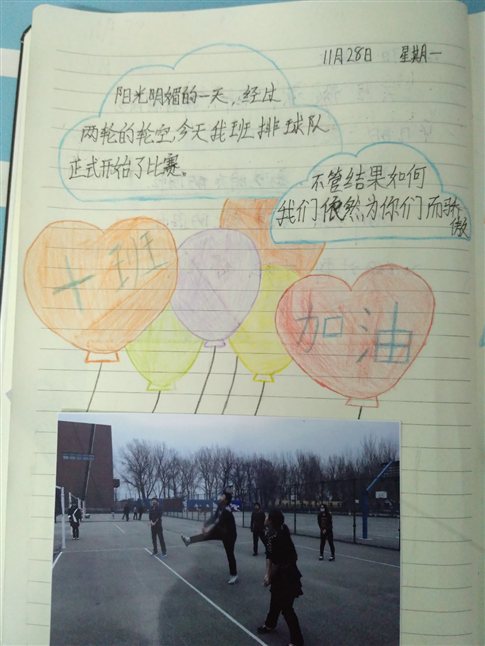 11月28日 星期一
阳光明媚的一天，经过
两轮的轮空，今天我班排球队
正式开始了比赛。
不管结果如何
我们依然为你们而骄
傲
十班
加油